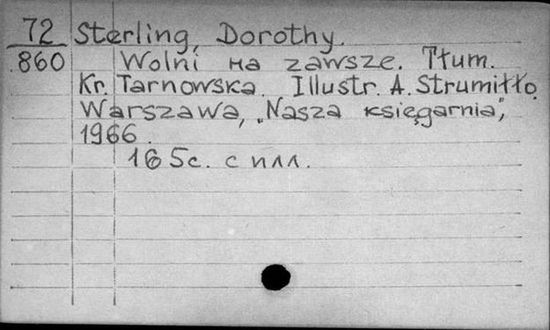 72 Sterling, Dorothy.
860 Wolni на zawsze. Tłum.
Kr. Tarnowska. Illustr. A. Strumiłło.
Warszawa, „Nasza księgarnia",
1966.
165с. с илл.